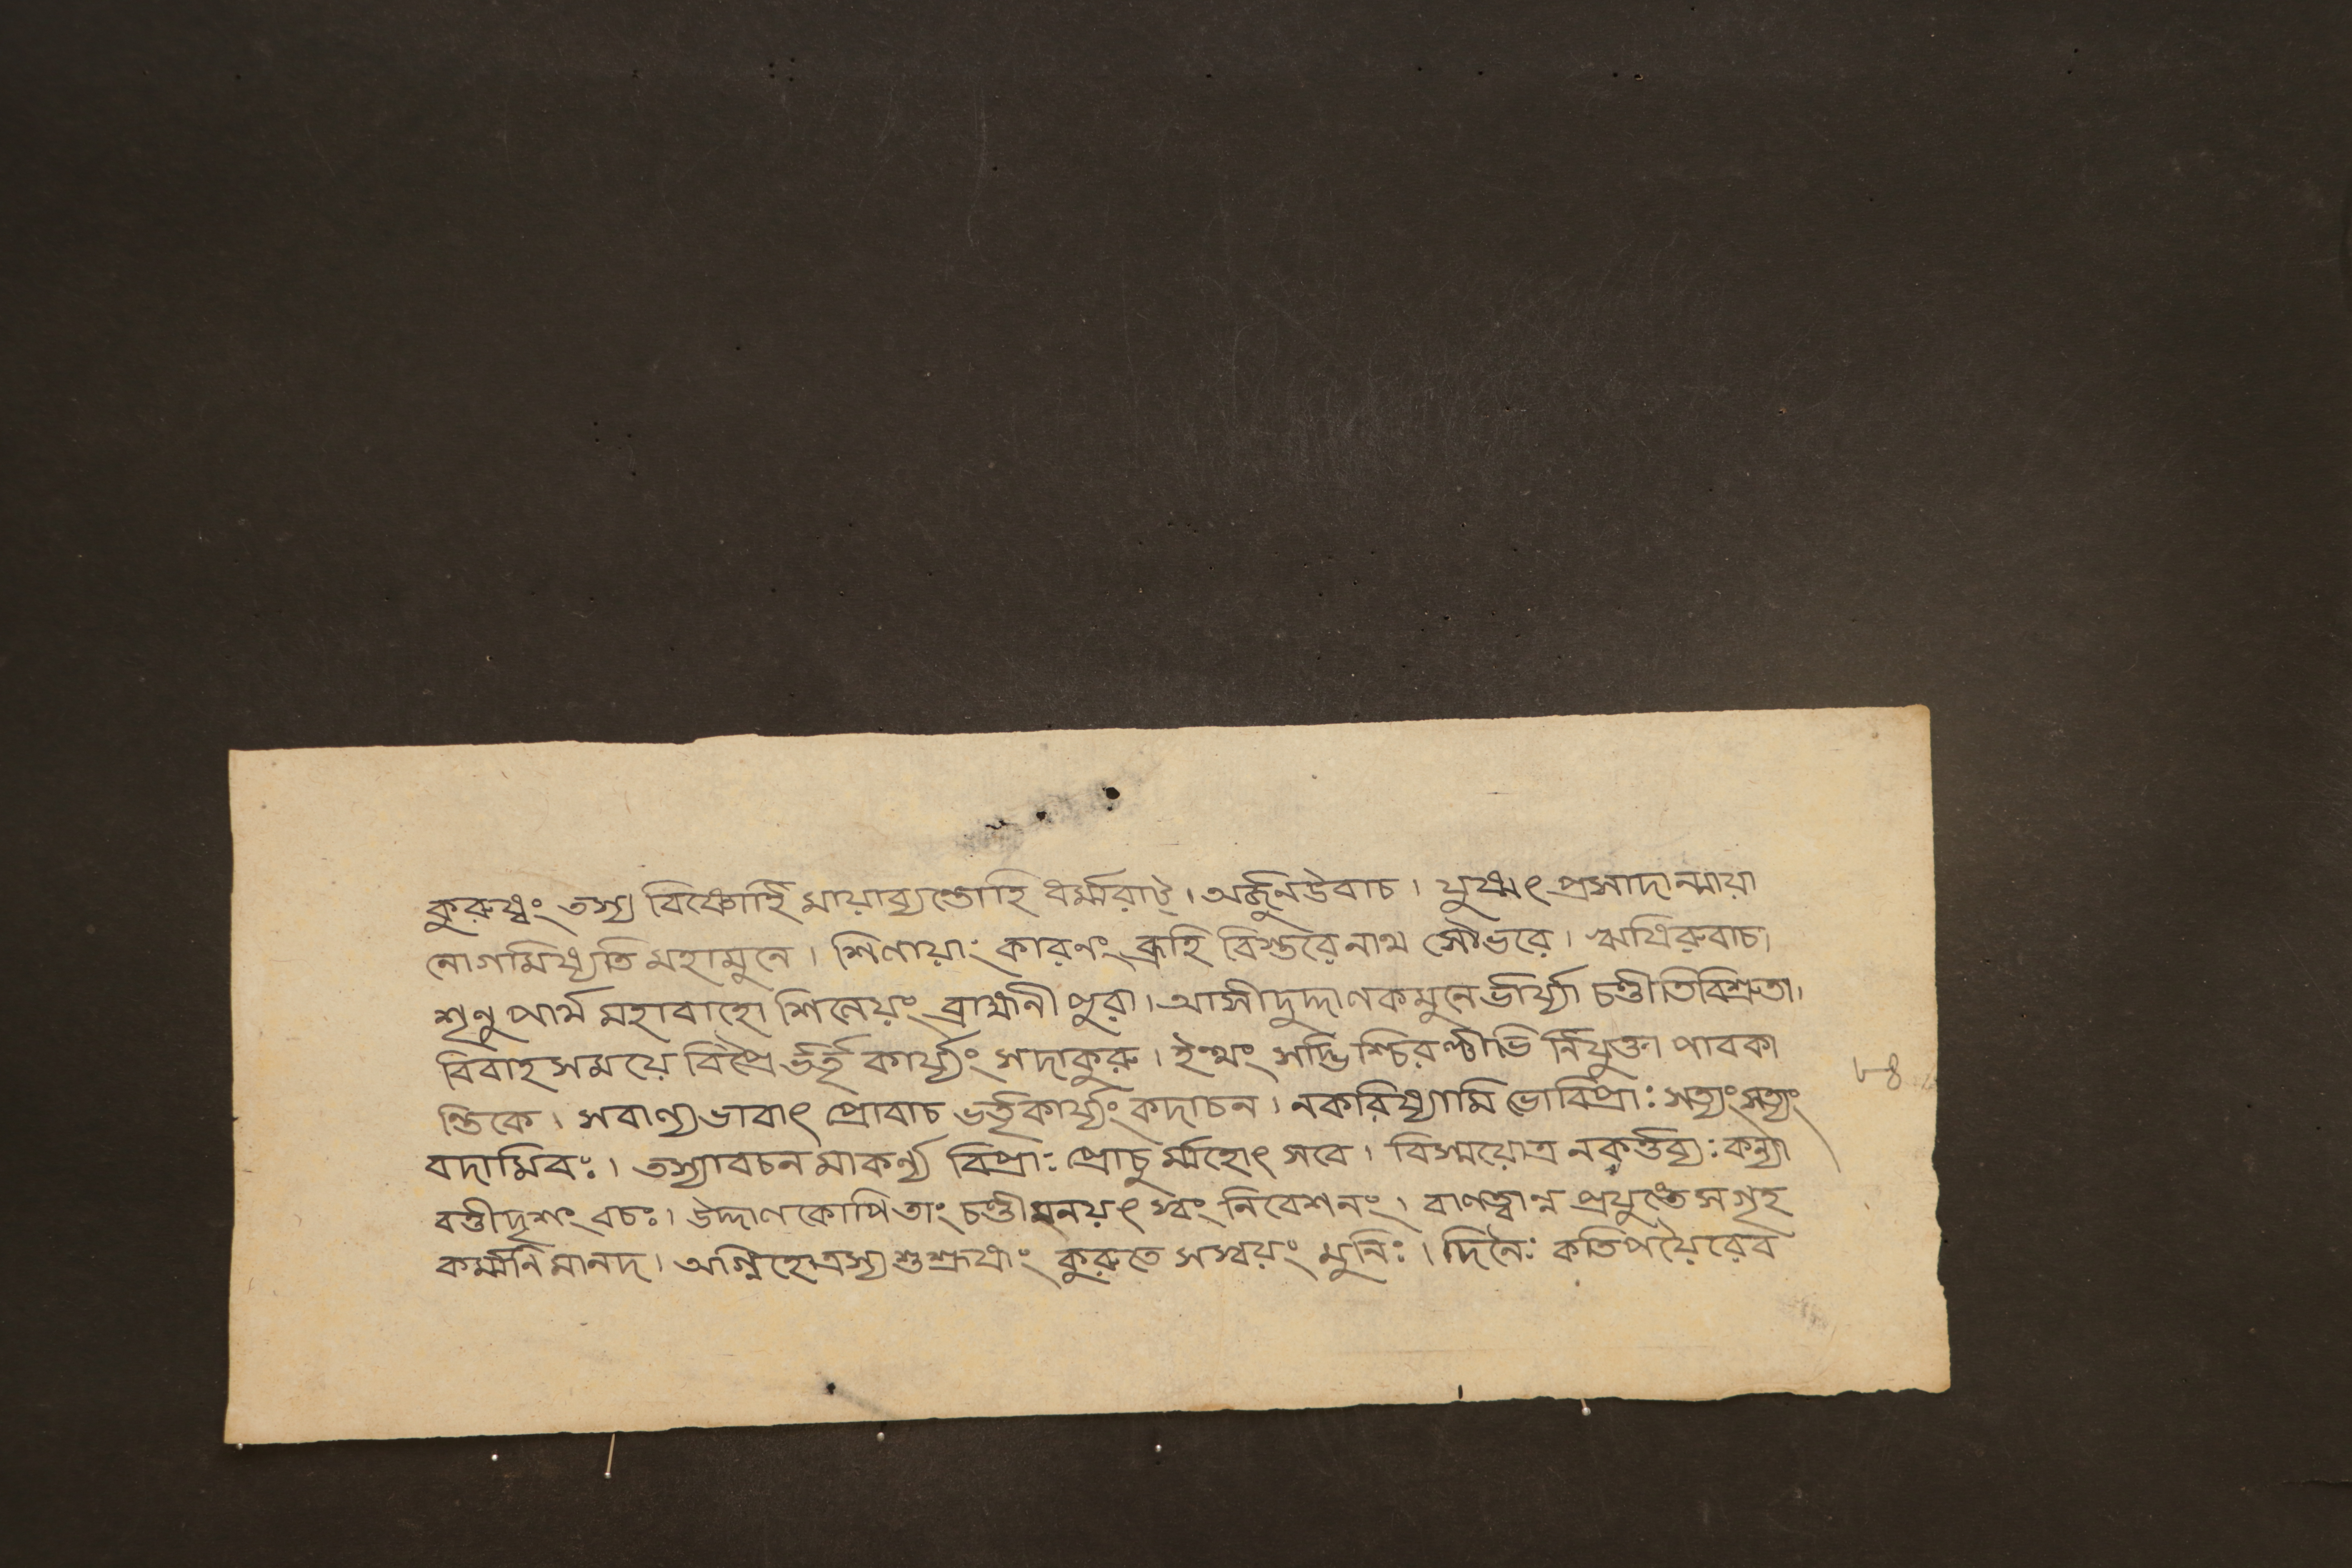 কুরুষ্বং তস্য বিষ্ণোর্হি মায়াব্যপ্তোহি ধর্ম্মরাট্। অর্জ্জুনউবাচ। যুষ্মৎ প্রসাদান্মায়া
নোগমিষ্যতি মহামুনে। শিলায়াং কারণং ব্রূহি বিস্তরেনাথ সৌভরে। ঋষিরুবাচ।
শৃনু পার্থ মহাবাহো শিলেয়ং ব্রাহ্মনী পুরা। আসীদুদ্দালকমুনে র্ভার্য্যা চণ্ডীতিবিশ্রুতা।
বিবাহসময়ে বিপ্রৈ র্ভর্তৃ কার্য্যং সদাকুরু। ইত্থং সদ্ভিশ্চিরণ্টীভি র্নিযুক্তা পাবকা
ন্তিকে। সবাল্যভাবাৎ প্রোবাচ ভর্তৃকার্য্যং কদাচন। নকরিষ্যামি ভোবিপ্রাঃ সত্যংসত্যং
বদামিবঃ। তস্যাবচনমাকর্ণ্য বিপ্রাঃ প্রোচু র্ম্মহোৎসবে। বিস্ময়োত্র নকর্ত্তব্যঃ কন্যা
বক্তীদৃশং বচঃ। উদ্দালকোপিতাং চণ্ডীমনয়ৎ স্বং নিবেশনং। বালত্বান্ন প্রযুঙ্ক্তে সগৃহ
কর্ম্মনি মানদ। অগ্নিহোত্রস্য শুশ্রূষাং কুরুতে সস্বয়ং মুনিঃ। দিনৈঃ কতিপয়ৈরেব
৮৪